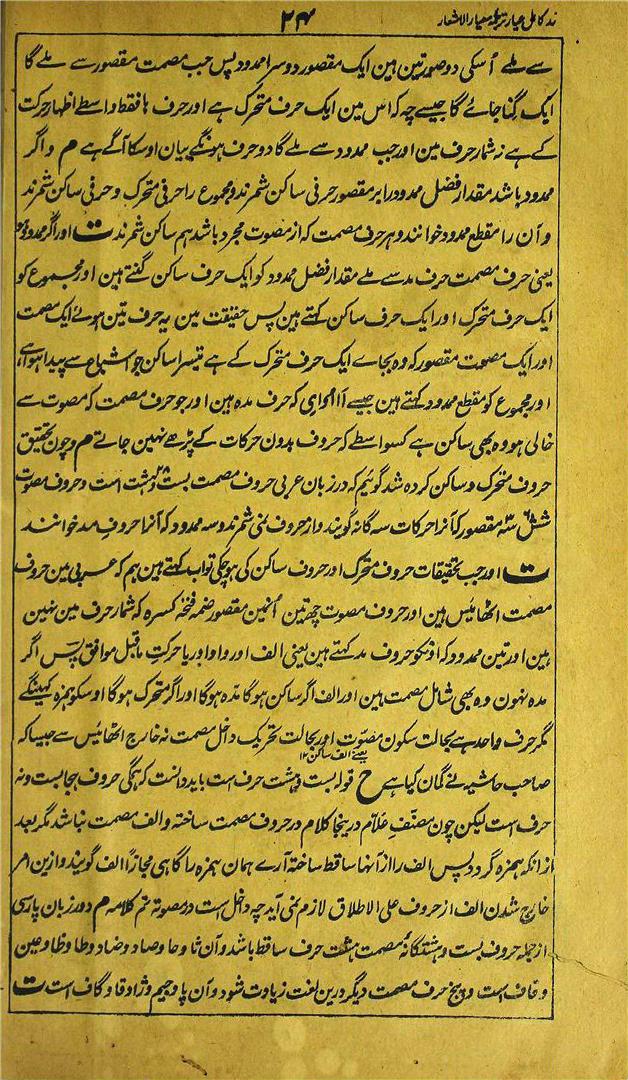 زر کامل عیار ترجمہ معیار الاشعار
۲۴
سے ملے اُسکی دو صورتین ہین ایک مقصور دوسرا ممدود پس جب مصمت مقصور سے ملے گا
ایک گنا جائے گا جیسے چہ کہ اس مین ایک حرف متحرک ہے اور حرف ہا فقط واسطے اظہار حرکت
کے ہے نہ شمار حرف مین اور جب ممدود سے ملے گا دو حرف ہونگے بیان اوسکا آگے ہے م و اگر
ممدود باشد مقدار فضل ممدود را بر مقصور حرفی ساکن شمرند و مجموع را حرفی متحرک و حرفی ساکن شمرند
و آن را مقطع ممدود خوانند و ہر حرف مصمت کہ از مصوت مجرد باشد ہم ساکن شمرند ت اور اگر ممدود ہو
یعنی حرف مصمت حرف مد سے ملے مقدار فضل ممدود کو ایک حرف ساکن گنتے ہین اور مجموع کو
ایک حرف متحرک اور ایک حرف ساکن کہتے ہین پس حقیقت مین یہ حرف تین ہوئے ایک مصمت
اور ایک مصمت مقصور کہ وہ بجاے ایک حرف متحرک کے ہے تیسرا ساکن جو اشباع سے پیدا ہوا ہے
اور مجموع کو مقطع ممدود کہتے ہین جیسے آ او ای کہ حرف مدہ ہین اور جو حرف مصمت کہ مصوت سے
خالی ہو وہ بھی ساکن ہے کسواسطے کہ حروف بدون حرکات کے پڑھے نہین جاتے م و چون تحقیق
حروف متحرک و ساکن کردہ شد گوئیم کہ در زبان عربی حروف مصمت بست و ہشت است و حروف مصوت
شش سہ مقصور کہ آنرا حرکات سہ گانہ گویند و از حروف نمی شمرند و سہ ممدود کہ آنرا حروف مد خوانند
ت اور جب تحقیقات حروف متحرک اور حروف ساکن کی ہو چکی تو اب کہتے ہین ہم کہ عربی مین حروف
مصمت اٹھائیس ہین اور حروف مصوت چھ تین اُنمین مقصور ضمہ فتحہ کسرہ کہ شمار حرف مین نہین
ہین اور تین ممدود کہ اونکو حروف مد کہتے ہین یعنی الف اور واو اور یا حرکت ماقبل موافق پس اگر
مدہ نہون وہ بھی شامل مصمت ہین اور الف اگر ساکن ہو گا مدہ ہو گا اور اگر متحرک ہو گا اوسکو ہمزہ کہینگے
مگر حرف واحد ہے بحالت سکون مصوت اور بحالت تحریک داخل مصمت نہ خارج اٹھائیس سے جیسا کہ
یعنے الف ساکن ۱۲
صاحب حاشیہ نے گمان کیا ہے ح قولہ بست و ہشت حرف است باید دانست کہ ہمگی حروف ہجا بست و نہ
حرف است لیکن چون مصنف علام درینجا کلام در حروف مصمت ساختہ و الف مصمت نباشد مگر بعد
از انکہ ہمزہ گردد پس الف را از آنہا ساقط ساختہ آرے ہمان ہمزہ را گاہی مجازاً الف گویند و ازین امر
خارج شدن الف از حروف علی الاطلاق لازم نمی آید چہ داخل است در مصوتہ تم کلامہ م و در زبان پارسی
از جملہ حروف بست و ہشتگانۂ مصمت ہشت حرف ساقط باشد و آن ثا و حا و صاد و ضاد و طا و ظا و عین
و قاف است و پنج حرف مصمت دیگر درین لغت زیادت شود و آن پا و چیم و ژا و فا و گاف است ت